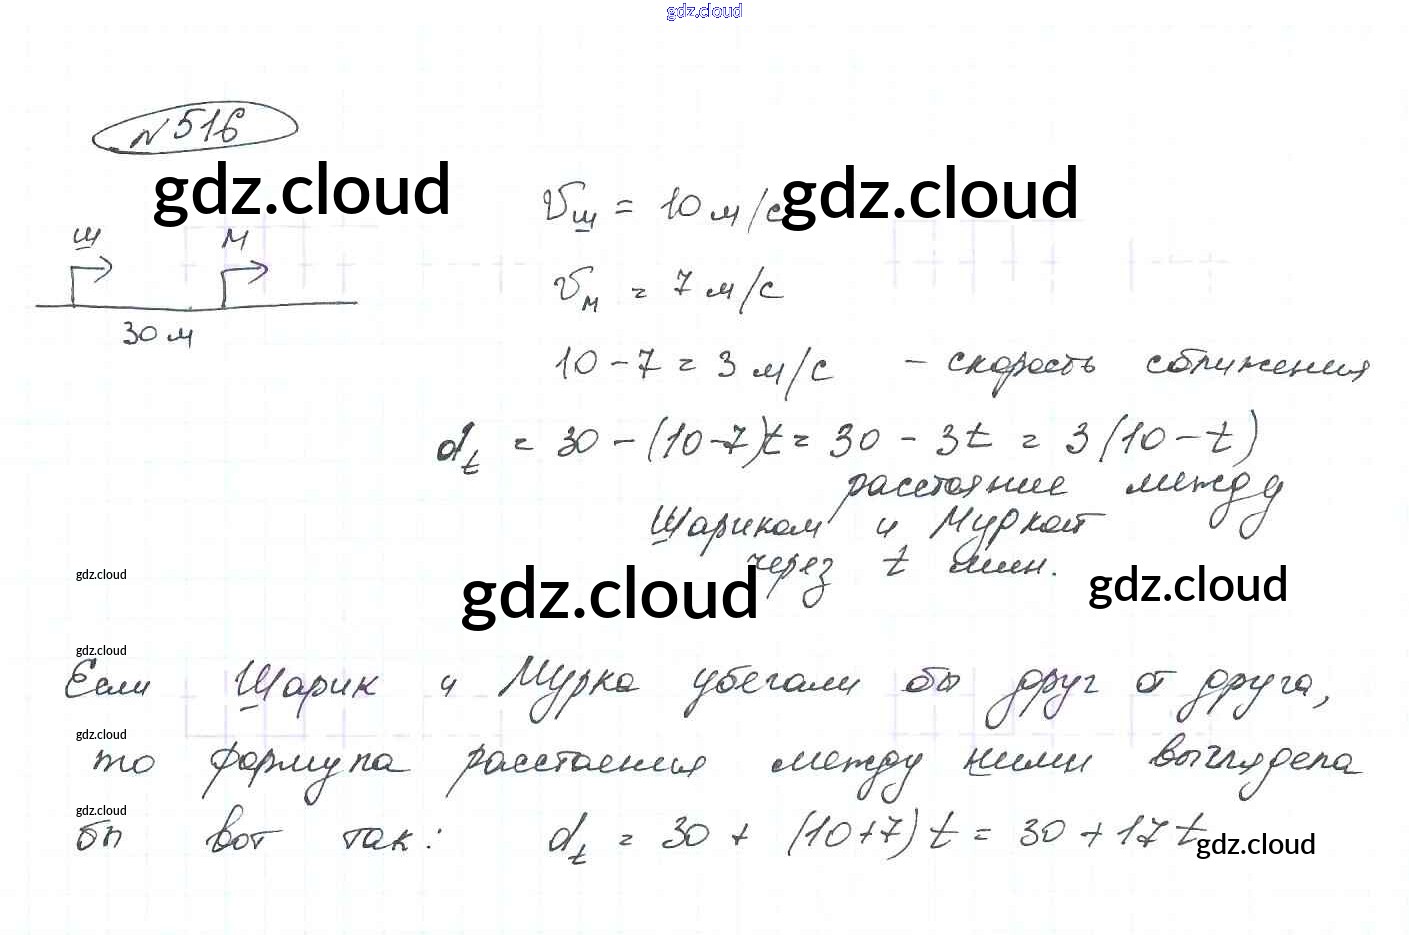 gdz.cloud
№516
gdz.cloud
gdz.cloud
Vш = 10 м/с
Ш М
Vм = 7 м/с
30 м
10 - 7 = 3 м/с - скорость сближения
dt = 30 - (10-7)t = 30 - 3t = 3(10-t)
расстояние между
Шариком и Муркой
через t мин.
gdz.cloud
gdz.cloud
gdz.cloud
gdz.cloud
Если Шарик и Мурка убегали бы друг от друга,
gdz.cloud
то формула расстояния между ними выглядела
gdz.cloud
бы вот так: dt = 30 + (10+7)t = 30 + 17t
gdz.cloud